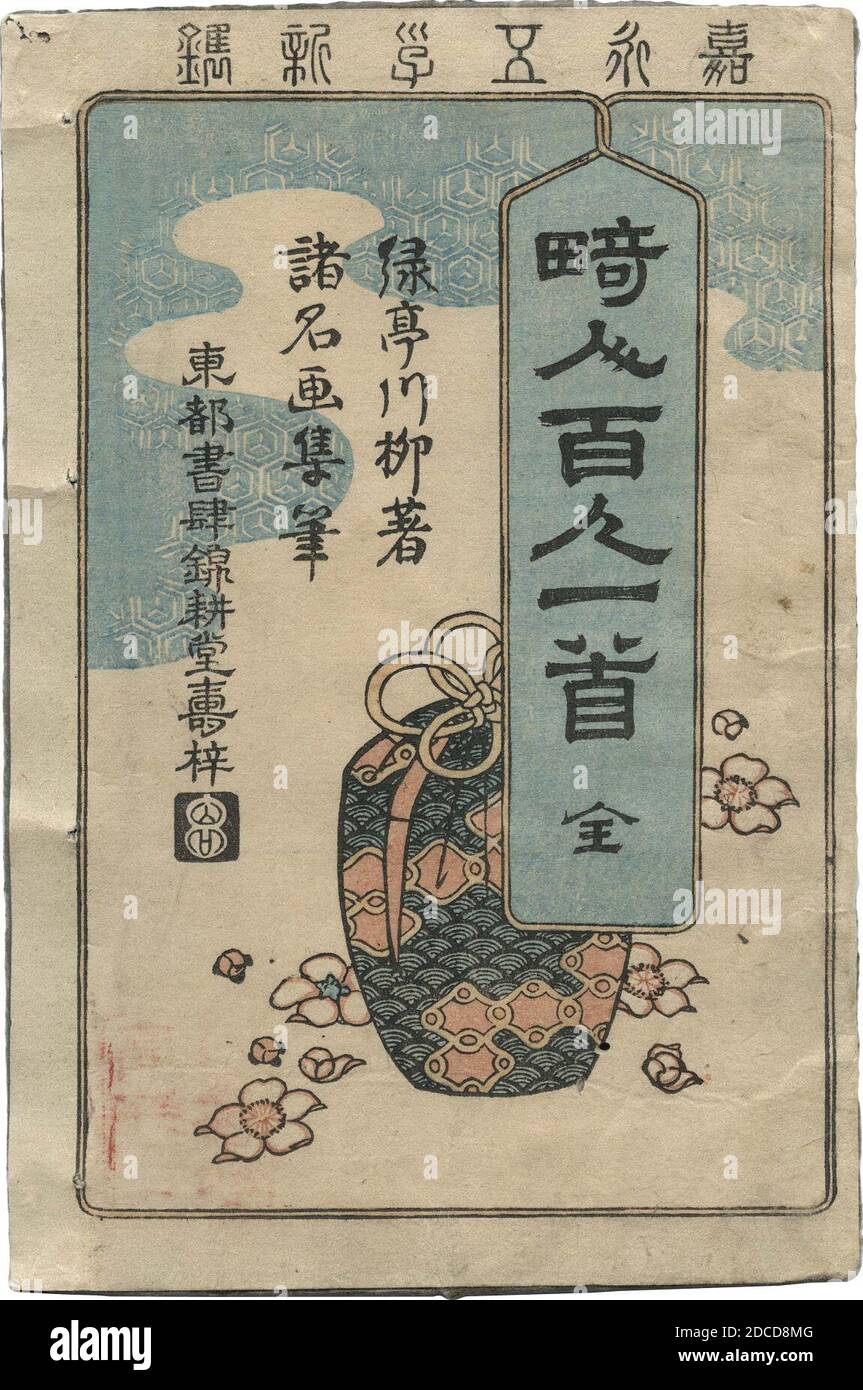 嘉永五新鐫
畸人百人一首 全
緑亭川柳著
諸名画集筆
東都書肆錦耕堂壽梓
alamy
alamy
alamy
a
a
a
a
a
a
a
a
alamy
Image ID: 2DCD8MG
www.alamy.com